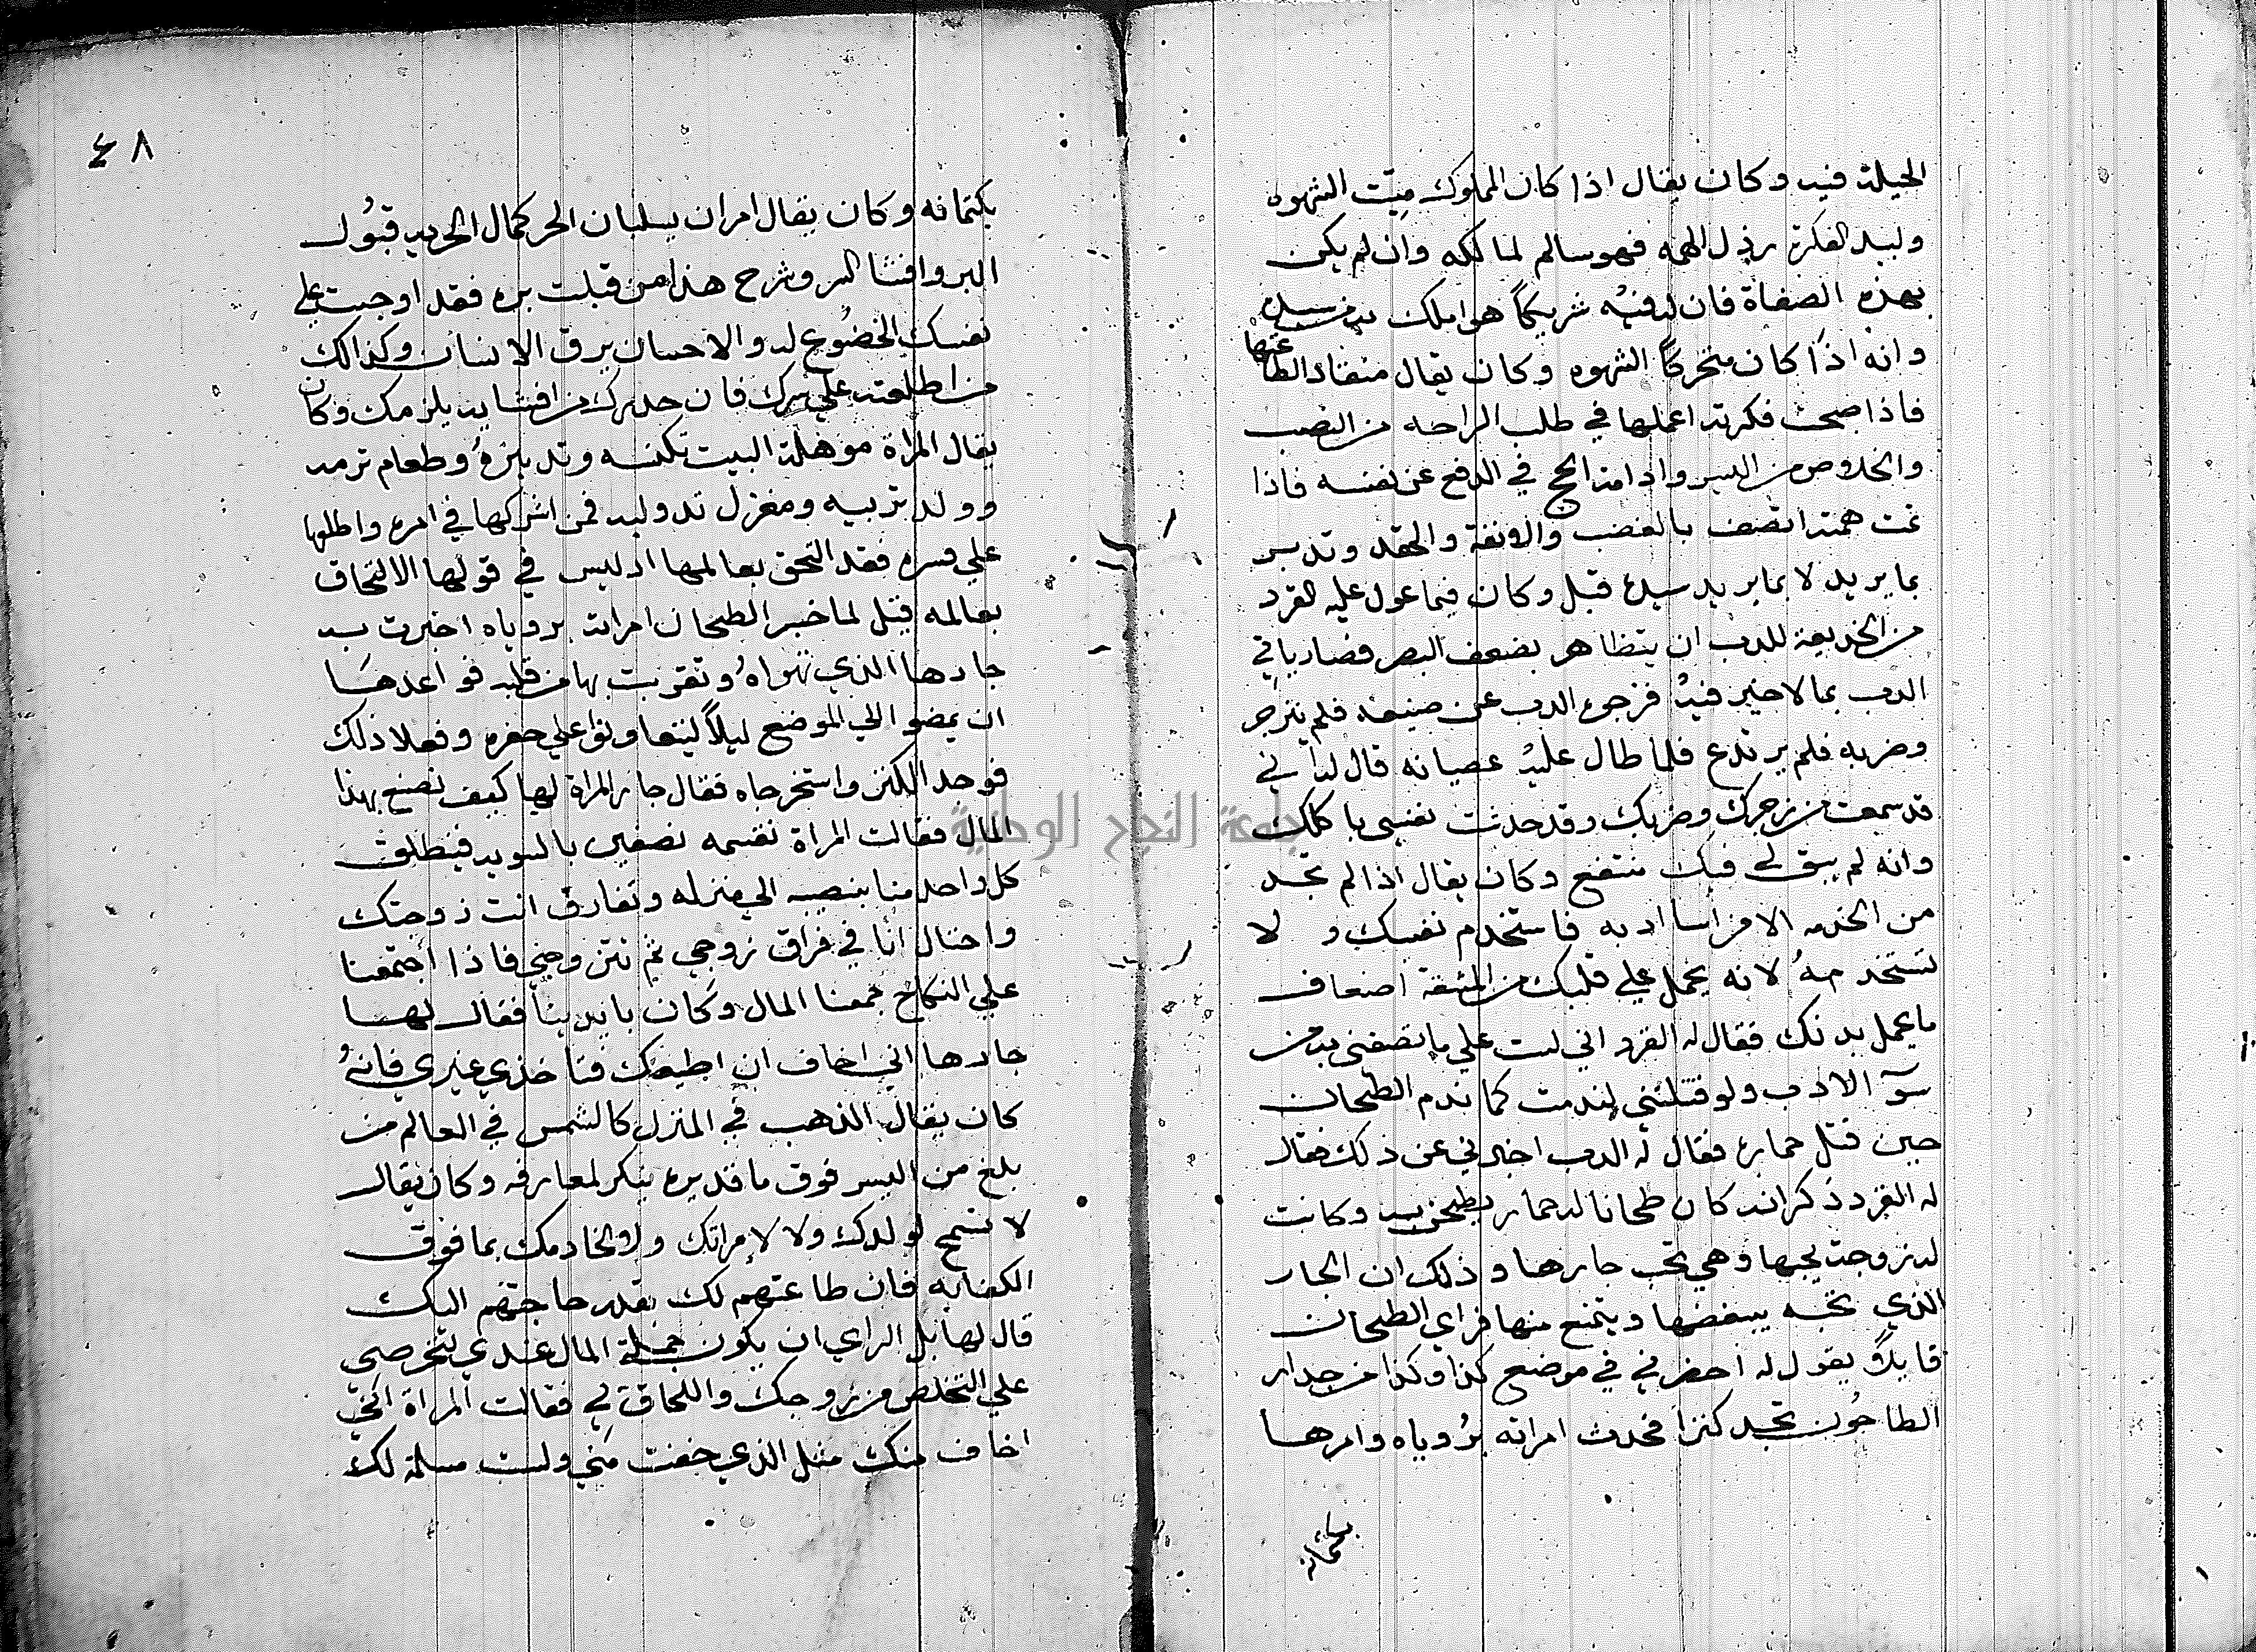 الحيلة فيه وكان يقال اذا كان المملوك ميّت الشهوه
وليد الفكرة رذل الهمه فهو سالم لمالكه وان لم يكن
بهذه الصفاة فان له فيه شريكاً هو املك به من سيده
وانه اذا كان متحركاً الشهوه وكان يقال منقاد الطا عنها
فاذا صحت فكرته اعملها في طلب الراحه من النصب
والخلاص من اليسر وادامة الحج في الدفع عن نفسه فاذا
تمت همته اتصف بالغضب والانفة والحقد وتدبير
بما يريد لا بما يريد سيده قيل وكان فيما عول عليه القرد
من الخديعة للدب ان يتظاهر بضعف البصر فصار ياتي
الدب بما لا خير فيه فزجره الدب عن صنيعه فلم ينزجر
وضربه فلم يرتدع فلما طال عليه عصيانه قال له اني
قد سمعت من زجرك وضربك وقد حدثت نفسي باكلك
وانه لم يبق لي فيك منتفع وكان يقال اذا لم تجد
من الخدمه الا من اسا ادبه فاستخدم نفسك ولا
تستخدمهُ لانه يحمل علي قلبك من المشقة اضعاف
ما يحمل بدنك فقال له القرد اني لست علي ما تصفني به من
سوٓ الادب ولو قتلتني لندمت كما ندم الطحان
حين قتل حماره فقال له الدب اخبرني عن ذلك فقال
له القرد ذكر انه كان طحانا له حمار يطحن به وكانت
له زوجة يحبها وهي تحب جارها وذلك ان الجار
الذي تحبه يبغضها ويتمنع منها فراي الطحان
قايلاً يقول له احفر في موضع كذا وكذا من جدار
الطاحون تجد كنزاً فحدث امراته برُوياه وامرها
بكتمانه
٤٨
بكتمانه وكان يقال امران يسلبان الحر كمال الحريه قبُول
البر وافشا السر وشرح هذا من قبلت بره فقد اوجبت علي
نفسك الخضُوع له والاحسان يرق الانسان وكذالك
من اطلعته علي سرك فان حدرك من افشايه يلزمك وكان
يقال المراة موهلة البيت تكنسه وتدبيرهُ وطعام ترمه
وولد تربيه ومغزل تدوليه فمن اشركها في امره واطلعها
علي سره فقد التحق بعالمها اذ ليس في قوتها الالتحاق
بعالمه قيل لما خبر الطحان امراته بروياه اخبرت به
جارها الذي تهواهُ وتقربت بها من قلبه فواعدها
ان يمضو الي الموضع ليلاً ليتعاونو علي حفره وفعلا ذلك
فوجد الكنز واستخرجاه فقال جار المراة لها كيف نصنع بهذا
المال فقالت المراة نقسمه نصفين بالسويه فينطلق
كل واحد منا بنصيبه الي منزله وتفارق انت زوجتك
واحتال انا في فراق زوجي ثم تتزوجني فاذا اجتمعنا
علي النكاح جمعنا المال وكان بايدينا فقال لها
جارها اني اخاف ان اطيعك فتاخذي غيري فانهُ
كان يقال الذهب في المنزل كالشمس في العالم من
بلغ من اليسر فوق ما قديره ينكر لمعارفه وكان يقال
لا تسمح لولدك ولا لامراتك ولا لخادمك بما فوق
الكفايه فان طاعتهم لك بقدر حاجتهم اليك
قال لها بل الراي ان يكون جملة المال عندي لتحرصي
علي التخلص من زوجك واللحاق بي فقالت المراة اني
اخاف منك مثل الذي خفت مني ولست مسلمة لك
جامعة النجاح الوطنية